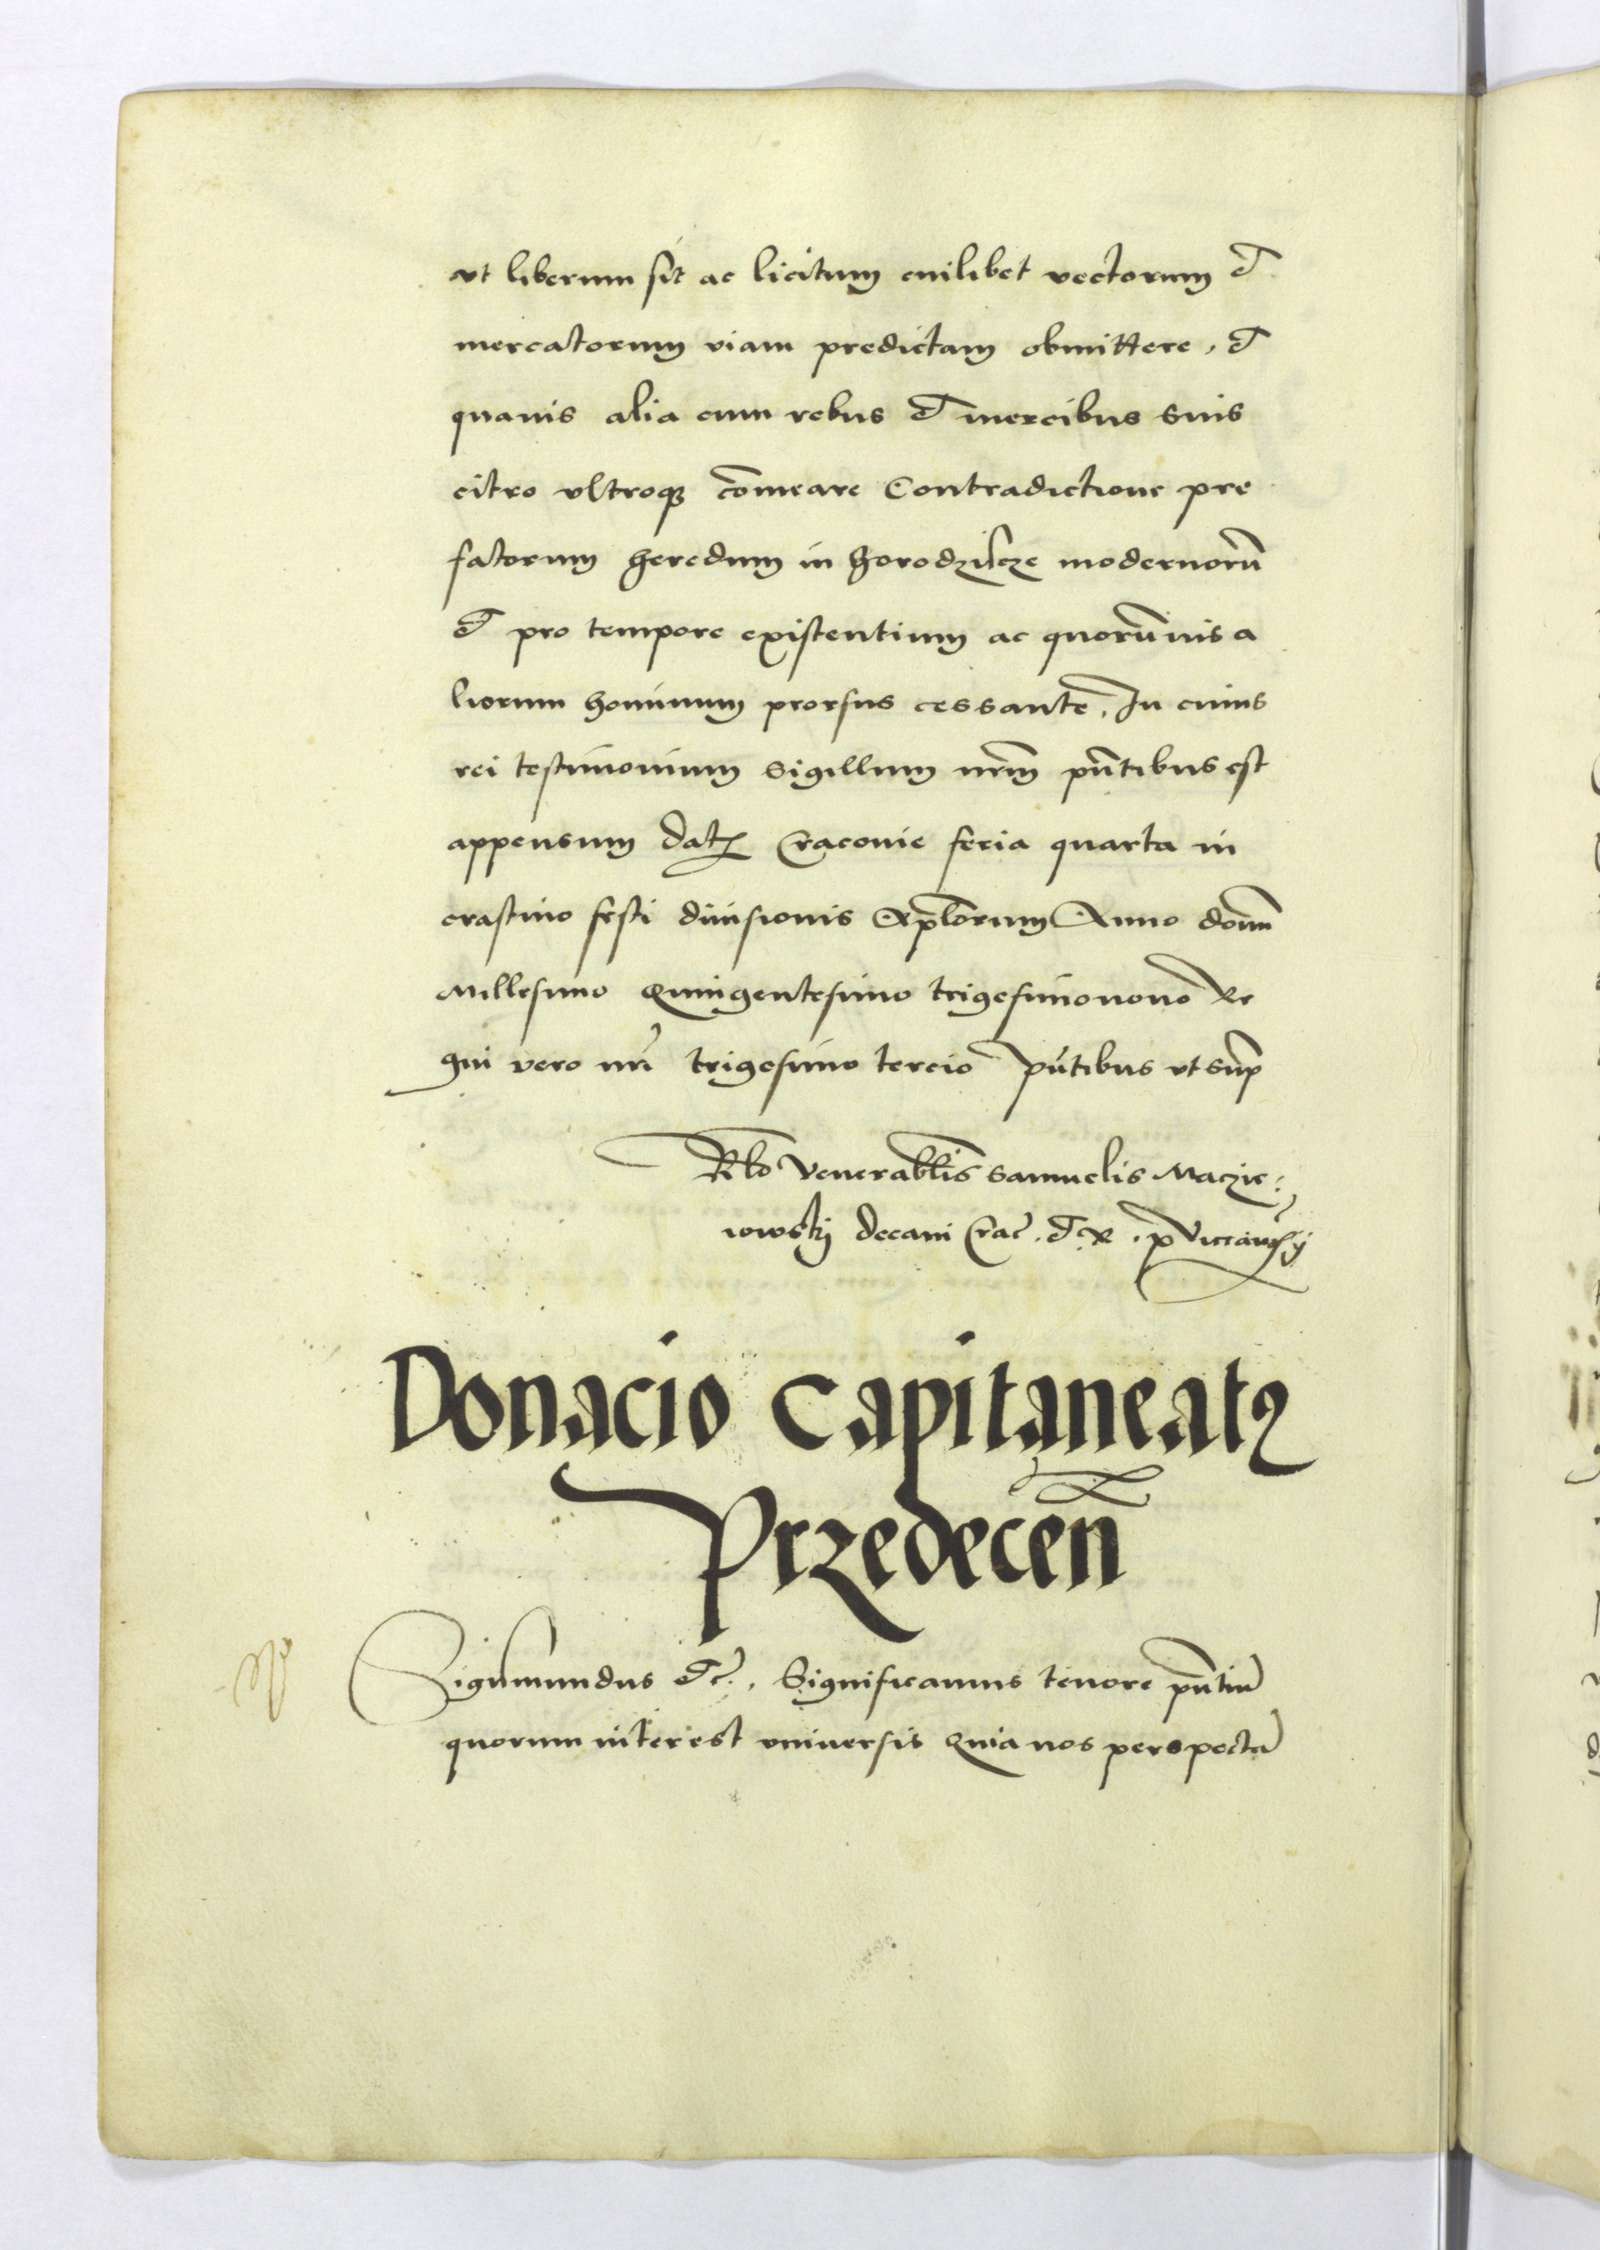 ut liberum sit ac licitum cuilibet vectorum et
mercatorum viam predictam obmittere, et
quavis alia cum rebus et mercibus suis
citro ultroqꝫ co͞meare Contradictione pre
fatorum heredum in horodziscze modernoru͞
et pro tempore existentium ac quoru͞vis a
liorum hominum prorsus cessante. In cuius
rei testimonium sigillum nr͞m pn͞tibus est
appensum datꝫ Cracovie feria quarta in
crastino festi divisionis Ap͞lorum Anno dom͞
Millesimo Quingentesimo trigesimonono Re
gni vero nr͞i trigesimo tercio Pn͞tibus ut sup͞
Rl͞o Venerabl͞is Samuelis Maczie:
iowskÿ decani Crac͞. et R. p Vicecan
Donacio Capitaneatꝫ
Przedecen͞
Sigismundus etc͞., Significamus tenore pn͞tiu͞
quorum interest universis Quia nos perspecta͞